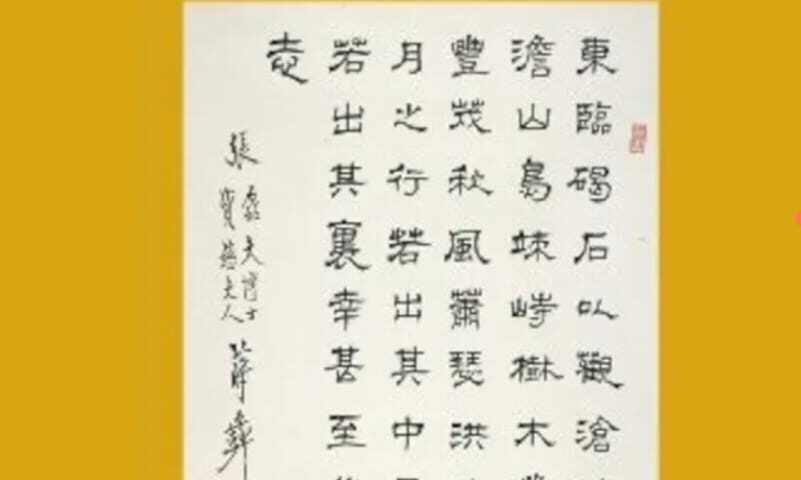 東臨碣石以觀滄
澹山島竦峙樹木
豐茂秋風蕭瑟洪
月之行若出其中
若出其裏幸甚至
志
張
夫博士
寶慈夫人
蔣彝